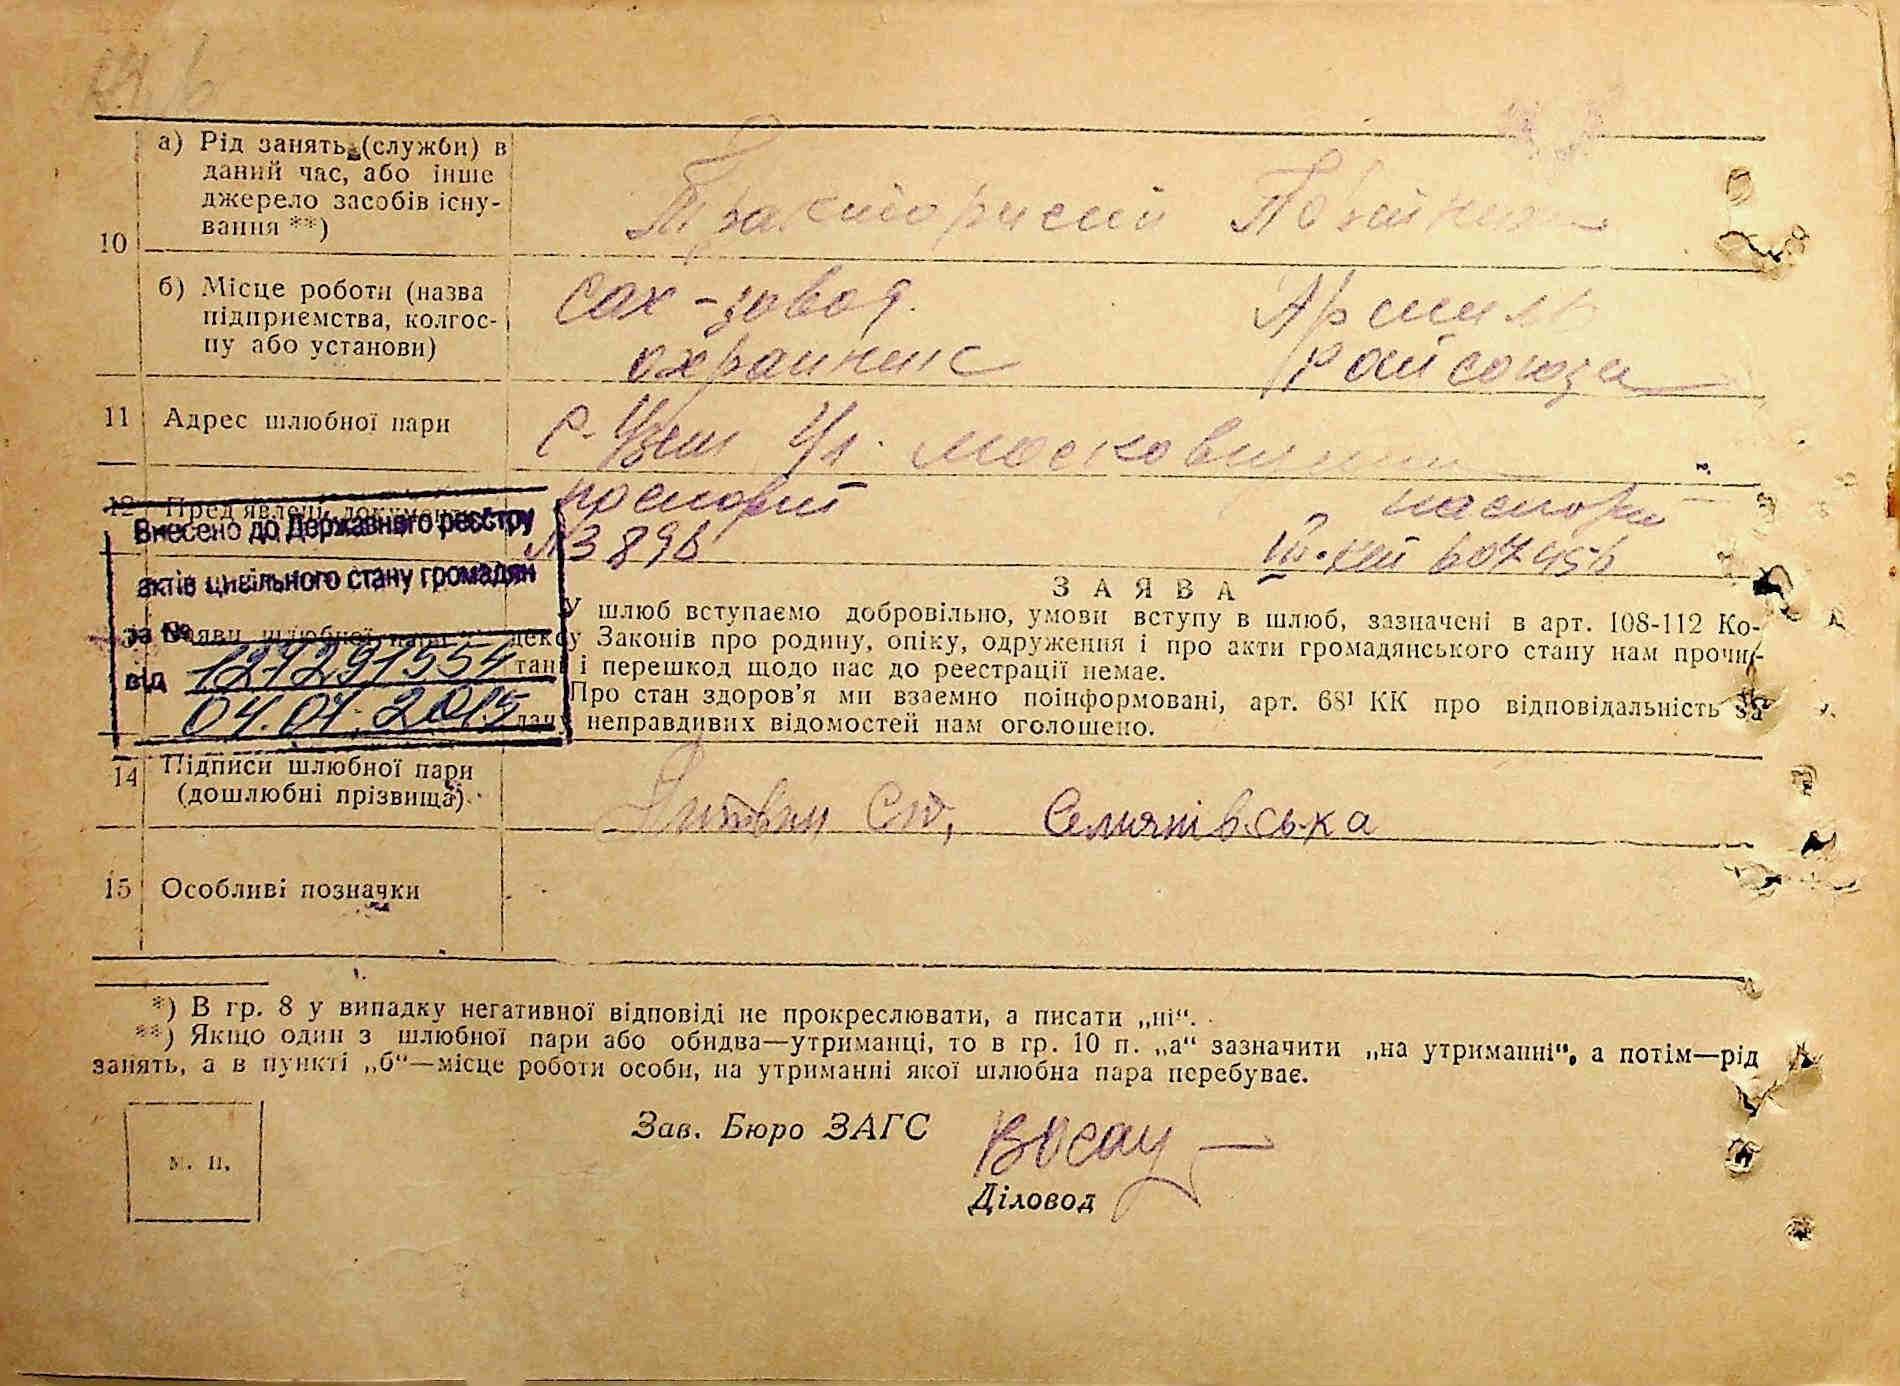 10 а) Рід занять (служби) в
даний час, або інше
джерело засобів існу-
вання **)
б) Місце роботи (назва
підприємства, колгос-
пу або установи)
Сах-завод
охранник
Райсоюза
11 Адрес шлюбної пари
с. Ул. Московщини
12 Пред'явлені документи
паспорт
паспорт
№ 3896
607456
Внесено до Державного реєстру
актів цивільного стану громадян
за №
127291554
від 04.07.2015
Заяви шлюбної пари
ЗАЯВА
У шлюб вступаємо добровільно, умови вступу в шлюб, зазначені в арт. 108-112 Ко-
дексу Законів про родину, опіку, одруження і про акти громадянського стану нам прочи-
тані і перешкод щодо нас до реєстрації немає.
Про стан здоров'я ми взаємно поінформовані, арт. 68¹ КК про відповідальність за
дану неправдивих відомостей нам оголошено.
14 Підписи шлюбної пари
(дошлюбні прізвища)
Литвин
15 Особливі позначки
*) В гр. 8 у випадку негативної відповіді не прокреслювати, а писати „ні“.
**) Якщо один з шлюбної пари або обидва—утриманці, то в гр. 10 п. „а“ зазначити „на утриманні“, а потім—рід
занять, а в пункті „б“—місце роботи особи, на утриманні якої шлюбна пара перебуває.
Зав. Бюро ЗАГС
М. П.
Діловод